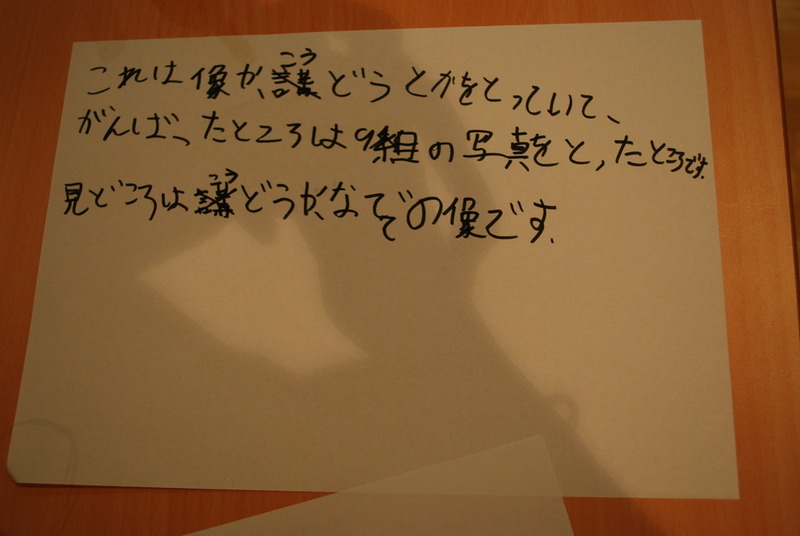 これは像が、講どうとかをとっていて、
がんばったところは9組の写真をとったところです。
見どころは講どうかなでての像です。